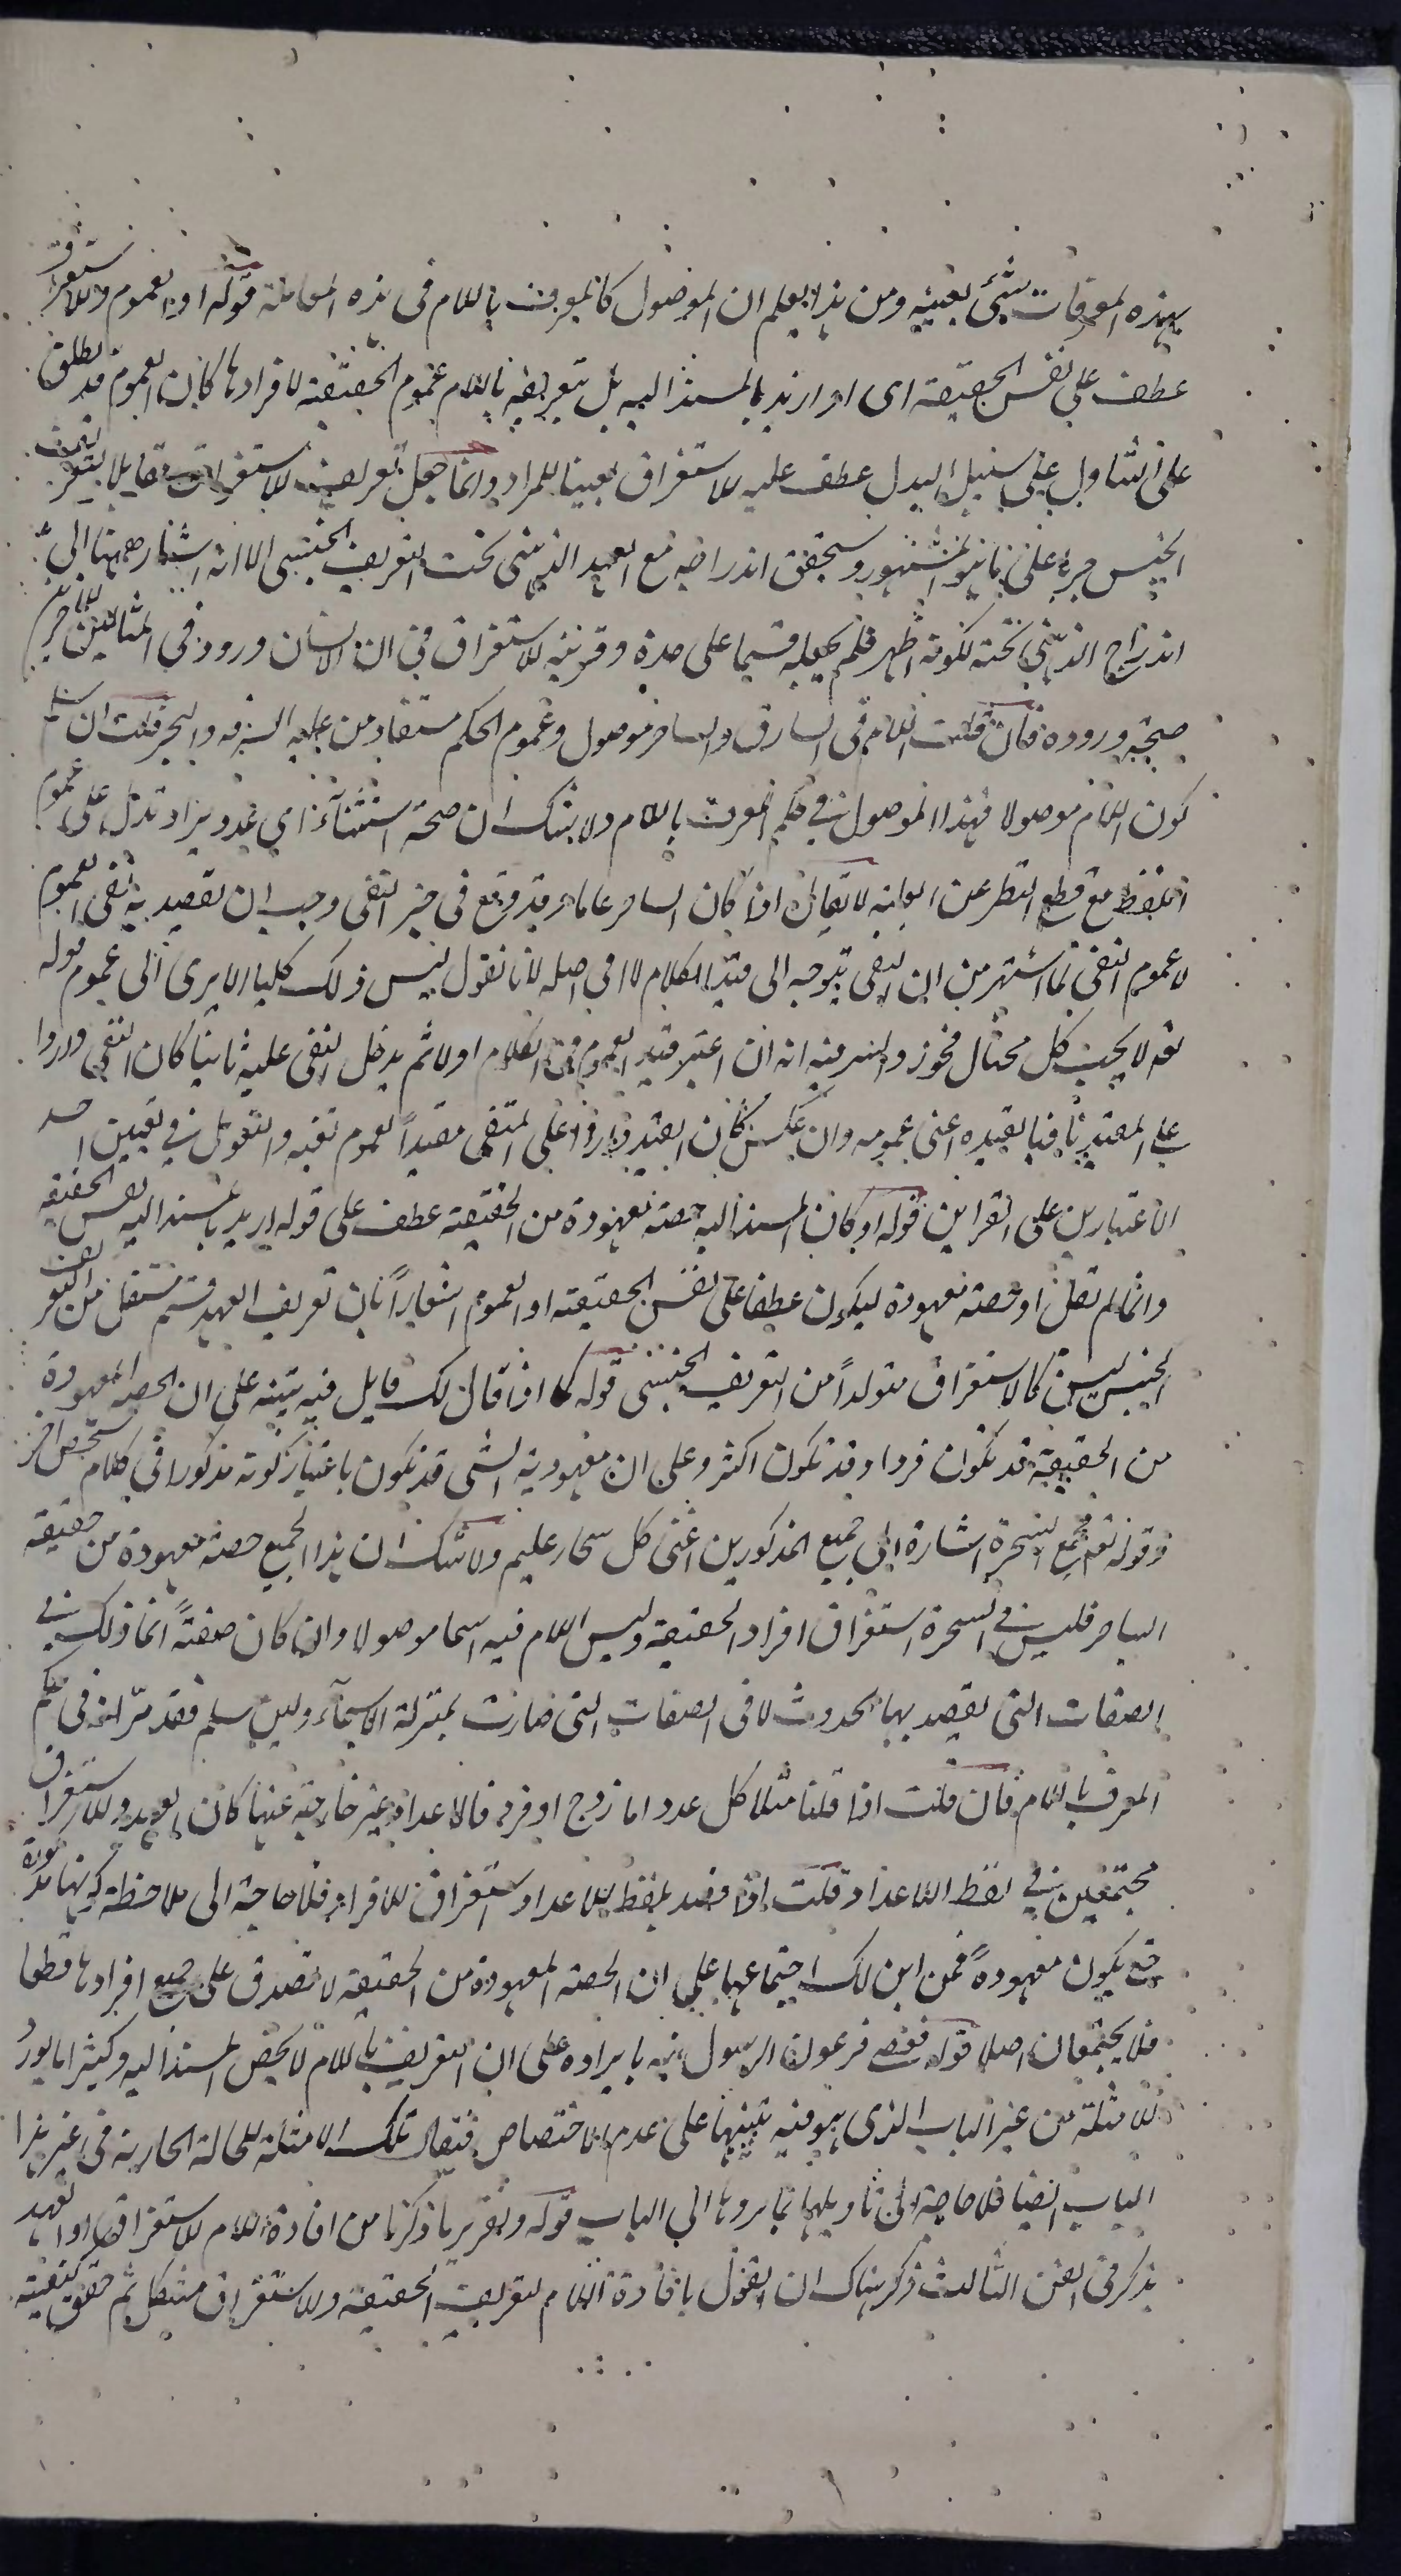 بهذه المعرفات شيئ بعينه ومن هذا يعلم ان الموصول كالمعرف باللام فى هذه المعاملة قوله او العموم والاستغراق
عطف على نفس الحقيقة اى او اريد بالمسند اليه بل بتعريفه باللام عموم الحقيقة لافرادها كان العموم قد يطلق
على التناول على سبيل البدل عطف عليه الاستغراق تعيينا للمراد وانما جعل تعريف الاستغراق مقابلا لتعريف
الجنس جريا على ما هو المشهور وسيحقق اندراجه مع العهد الذهنى تحت التعريف الجنسى الا انه اشار ههنا الى
اندراج الذهني تحته لكونه اظهر فلم يجعله قسيما على حدة وقرينه الاستغراق في ان الانسان وروده في المثالين الاخرين
صحته وروده فان قلت اللام فى السارق والساحر موصول وعموم الحكم مستفاد من علية السرقه والسحر قلت ان سلم
كون اللام موصولا فهذا الموصول في حكم المعرف باللام ولا شك ان صحة استثنآء زاي عدو يزاد تدل على عموم
اللفظ مع قطع النظر عن العلية لا يقال اذا كان الساحر عاما وقد وقع فى حيز النفى وجب ان يقصد به نفى العموم
لا عموم النفى لما اشتهر من ان النفى يتوجه الى قيد الكلام لا الى اصله لانا نقول ليس ذلك كليا الا يرى الى عموم قوله
تعه لا يحب كل مختال فخور والسر فيه انه ان اعتبر قيد العموم في الكلام اولا ثم يدخل النفى عليه ثانيا كان النفى واردا
على المقيد نافيا لقيده اعنى عمومه وان عكس كان القيد واردا على المنفى مقيدا لعموم نفيه والتعويل في تعيين احد
الاعتبارين على القراين قوله او كان المسند اليه حصته معهودة من الحقيقة عطف على قوله اريد بالمسند اليه نفس الحقيقة
وانما لم يقل او حصته معهودة ليكون عطفا على نفس الحقيقة او العموم اشعارا بان تعريف العهد قسم مستقل من التعريف
الجنسى ليس كالاستغراق متولدا من التعريف الجنسى قوله كما اذا قال لك قايل فيه تنبيه على ان الحصة المعهودة
من الحقيقة قد تكون فردا وقد تكون اكثر وعلى ان معهودية الشى قد تكون باعتبار كونه مذكورا فى كلام شخص اخر
وقوله تعه فجمع السحرة اشارة الى جميع المذكورين اعنى كل سحار عليم ولا شك ان هذا الجميع حصة معهودة من حقيقة
الساحر فليس في السحرة استغراق افراد الحقيقة وليس اللام فيه اسما موصولا وان كان صفتةً انما ذلك في
الصفات التى يقصد بها الحدوث لا فى الصفات التى صارت بمنزلة الاسمآء ولين سلم فقد مرّ انه فى حكم
المعرف باللام فان قلت اذا قلنا مثلا كل عدد اما زوج او فرد فالاعداد غير خارجة عنها كان العهد والاستغراق
مجتمعين في لفظ الاعداد قلت اذا قصد بلفظ الاعداد استغراق الافراد فلا حاجة الى ملاحظة كونها مذكورة
حتى يكون معهودةً فمن اين لك اجتماعهما على ان الحصة المعهودة من الحقيقة لا تصدق على جميع افرادها قطعا
فلا يجتمعان اصلا قوله فعصى فرعون الرسول نبه بايراده على ان التعريف باللام لا يخص المسند اليه وكثيرا ما يورد
الامثلة من غير الباب الذى هو فيه تنبيها على عدم الاختصاص فتقاس تلك الامثلة للحالة الجارية فى غير هذا
الباب ايضا فلا حاجة الى تاويلها بما يردها الى الباب قوله ولتقرير ما ذكرنا من افادة اللام للاستغراق او العهد
يذكر فى الفن الثالث ذكر هناك ان القول بافادة اللام لتعريف الحقيقة والاستغراق مشكل ثم حقق كيفية